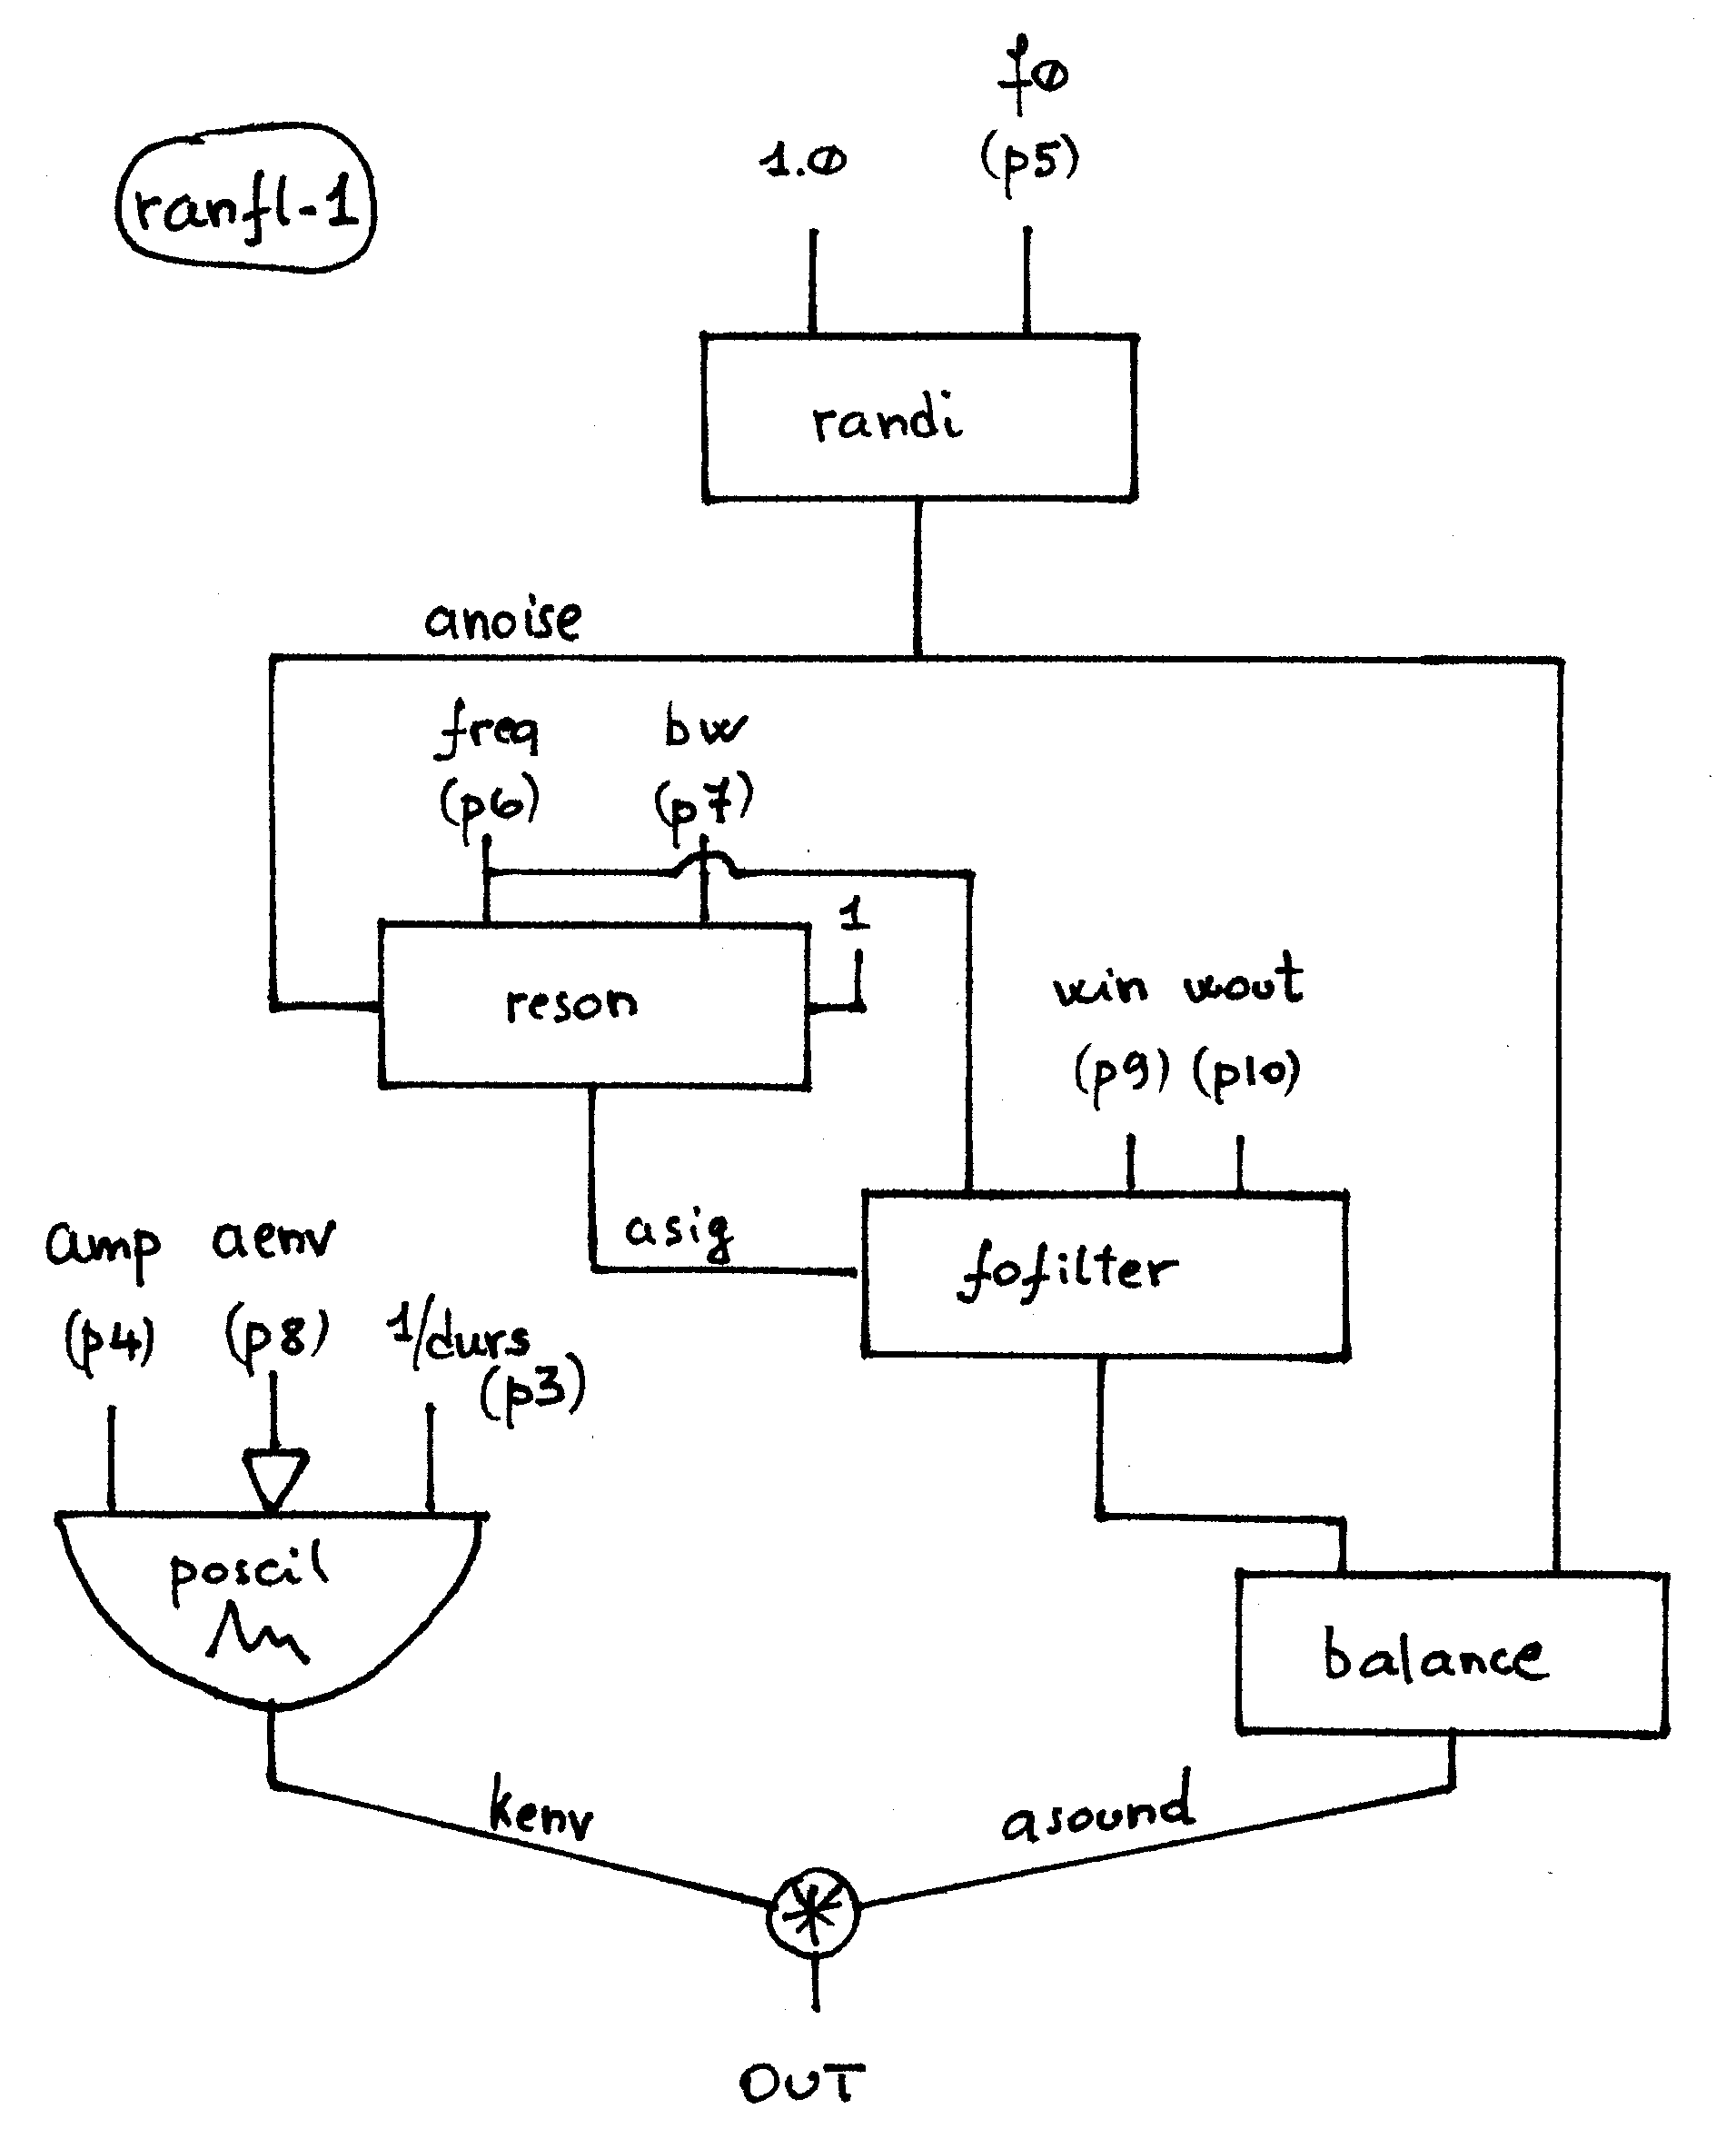 ranfl-1
f0
1.0 (p5)
randi
anoise
freq bw
(p6) (p7)
1
reson
win wout
(p9) (p10)
asig
fofilter
amp aenv
(p4) (p8) 1/durs
(p3)
poscil
balance
kenv asound
*
OUT